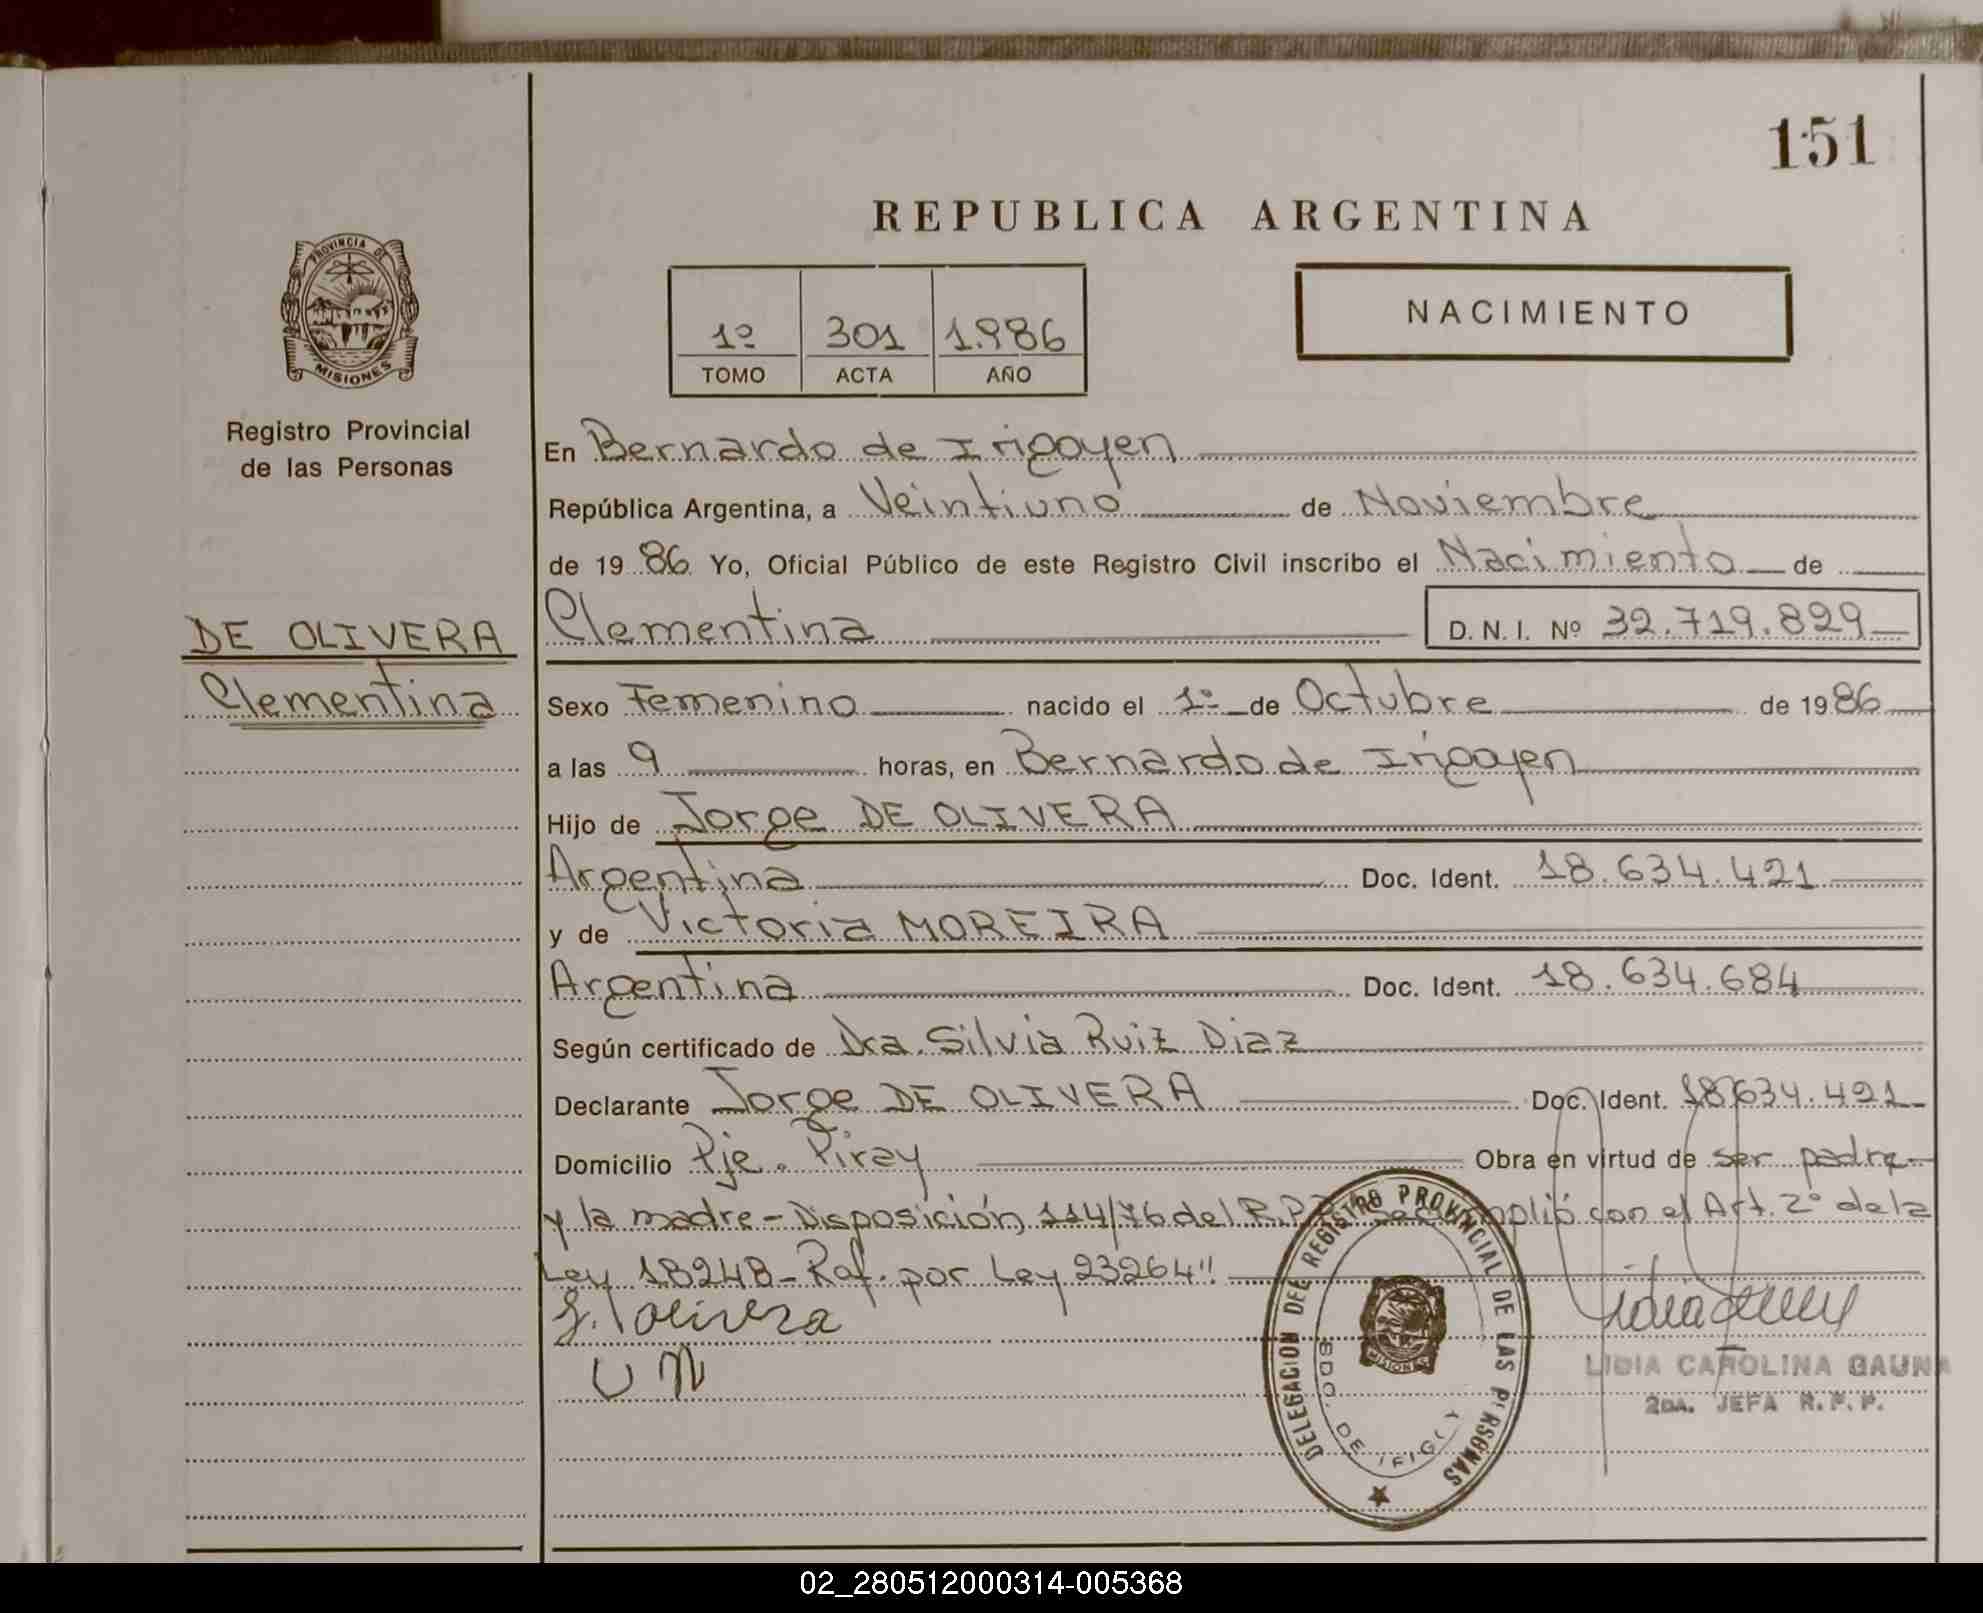 151
REPUBLICA ARGENTINA
PROVINCIA DE
MISIONES
1º 301 1.986
TOMO ACTA AÑO
NACIMIENTO
Registro Provincial
de las Personas
En Bernardo de Irigoyen
República Argentina, a Veintiuno de Noviembre
de 19 86 Yo, Oficial Público de este Registro Civil inscribo el Nacimiento de
DE OLIVERA
Clementina
Clementina D. N. I. Nº 32.719.829
Sexo Femenino nacido el 1º de Octubre de 19 86
a las 9 horas, en Bernardo de Irigoyen
Hijo de Jorge DE OLIVERA
Argentina Doc. Ident. 18.634.421
y de Victoria MOREIRA
Argentina Doc. Ident. 18.634.684
Según certificado de Dra. Silvia Ruiz Diaz
Declarante Jorge DE OLIVERA Doc. Ident. 18.634.421
Domicilio Pje. Piray Obra en virtud de ser padre
y la madre - Disposición 114/76 del con el Art. 2º de la
Ley 18248 - Raf. por Ley 23264"
J. olivera
DELEGACION DEL REGISTRO PROVINCIAL DE LAS PERSONAS
BDO. DE
MISIONES
LIDIA CAROLINA GAUNA
2DA. JEFA R. P. P.
02_280512000314-005368